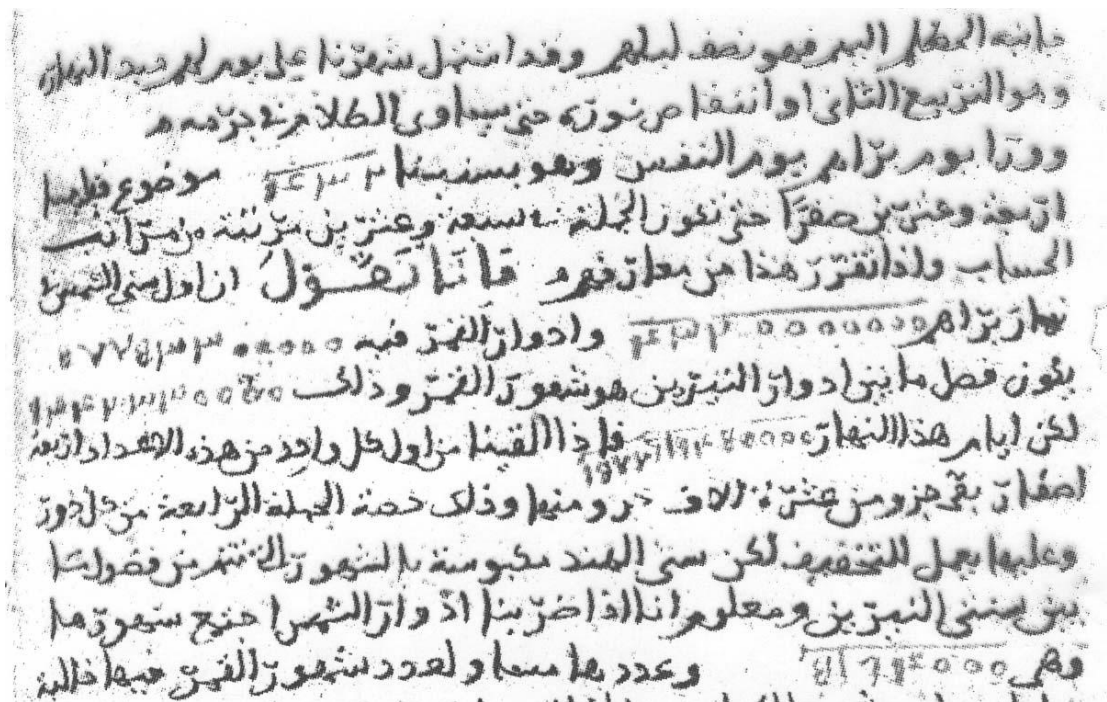 جانبه المظلم البدر فهو نصف ليلهم وقد اشتمل شهرنا على يوم لهم مبدا النهار
وهو التربيع الثاني او انتقاص نوره حتى يساوى الظلام في جرمه
وورا يوم براهم يوم النفس وهو بسنينا موضوع قبلها
اربعة وعشرين صفرا حتى تكون الجملة تسعة وعشرين مرتبة من مراتب
الحساب واذا تقرر هذا من معارفهم فانا نقول ان اول سنى الشمس
نهار براهم ٤٣٢٠٠٠٠٠٠٠ وادوار القمر فيه ٥٧٧٥٣٣٠٠٠٠٠
يكون فصل ما بين ادوار النيرين هو شهور القمر وذلك ٥٣٤٣٣٣٠٠٠٠٠
لكن ايام هذا النهار فاذا القينا من اول كل واحد من هذه الاعداد اربعة
اصفار بقى جزو من عشرة الاف جزو منها وذلك حصة الجملة الرابعة من كل دور
وعليها يعمل للتخفيف لكن سنى الهند مكبوسة بالشهور التى تتم من فضول ما
بين سنتى النيرين ومعلوم انا اذا ضربنا ادوار الشمس اجتمع شهورها
وهى ٥١٨٤٠٠٠ وعددها ولعدد شهور القمر فيها خالية